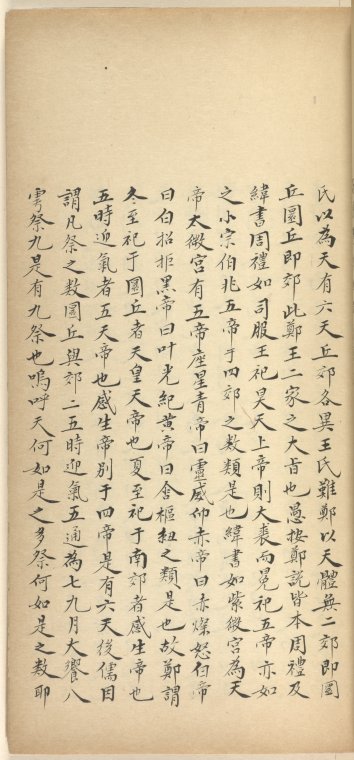 氏以為天有六天丘郊各異王氏難鄭以天體無二郊即圜
丘圜丘即郊此鄭王二家之大旨也愚按鄭說皆本周禮及
緯書周禮如司服王祀昊天上帝則大裘而冕祀五帝亦如
之小宗伯兆五帝于四郊之数類是也緯書如紫微宮為天
帝太微宮有五帝座星青帝曰靈威仰赤帝曰赤熛怒白帝
曰白招拒黑帝曰叶光紀黄帝曰含樞紐之類是也故鄭謂
冬至祀于圜丘者天皇天帝也夏至祀于南郊者感生帝也
五時迎氣者五天帝也感生帝別于四帝是有六天後儒因
謂凡祭之数圜丘與郊二五時迎氣五通為七九月大饗八
雩祭九是有九祭也嗚呼天何如是之多祭何如是之数耶